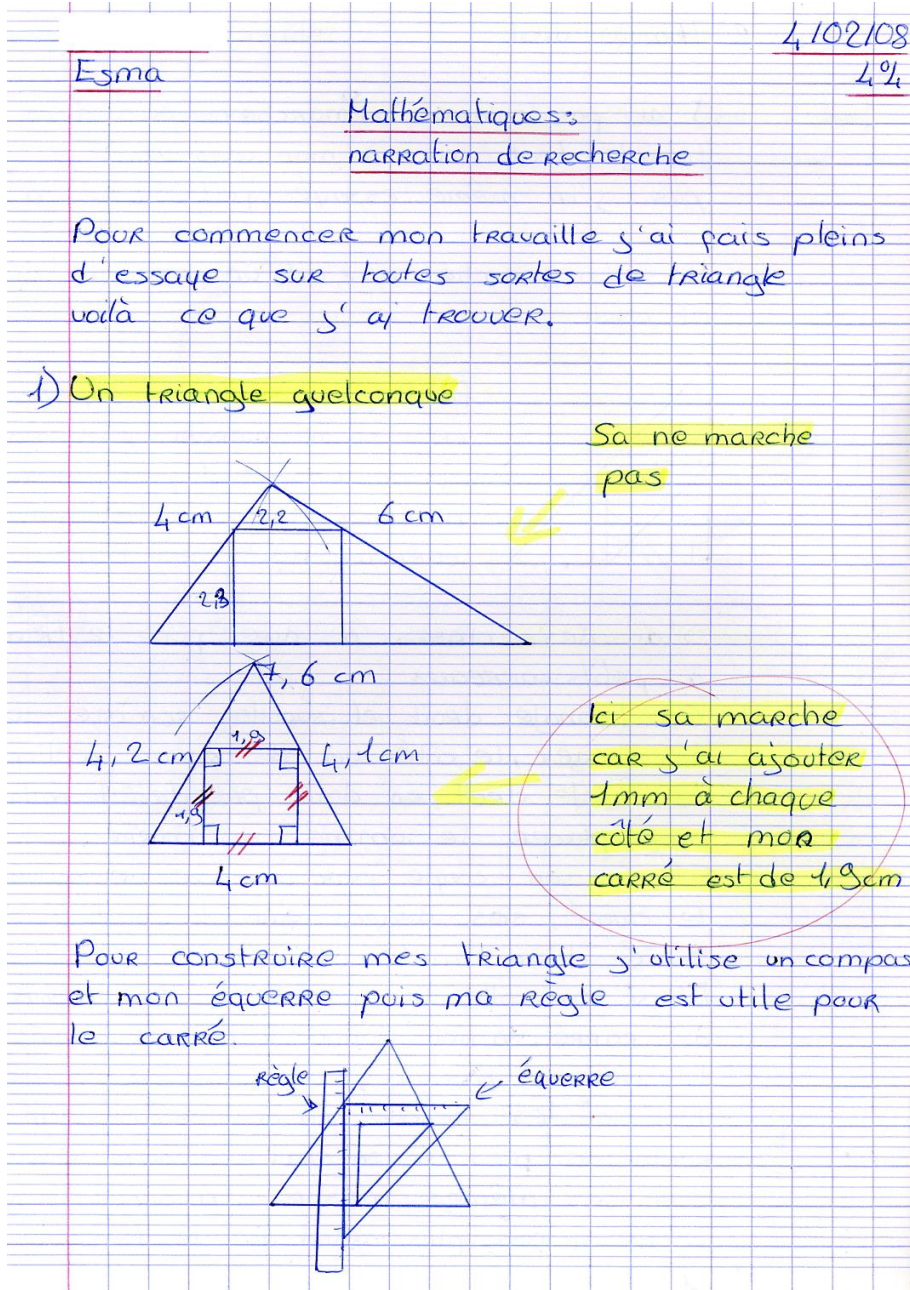 4/02/08
Esma
4°4
Mathématiques:
narration de recherche
Pour commencer mon travaille j'ai fais pleins
d'essaye sur toutes sortes de triangle
voilà ce que j'ai trouver.
1) Un triangle quelconque
Sa ne marche
pas
4 cm
2,2
6 cm
7,6 cm
Ici sa marche
car j'ai ajouter
1mm à chaque
côté et mon
carré est de 1,9cm
4,2 cm
1,9
4,1cm
1,9
4 cm
Pour construire mes triangle j'utilise un compas
et mon équerre puis ma règle est utile pour
le carré.
règle
équerre